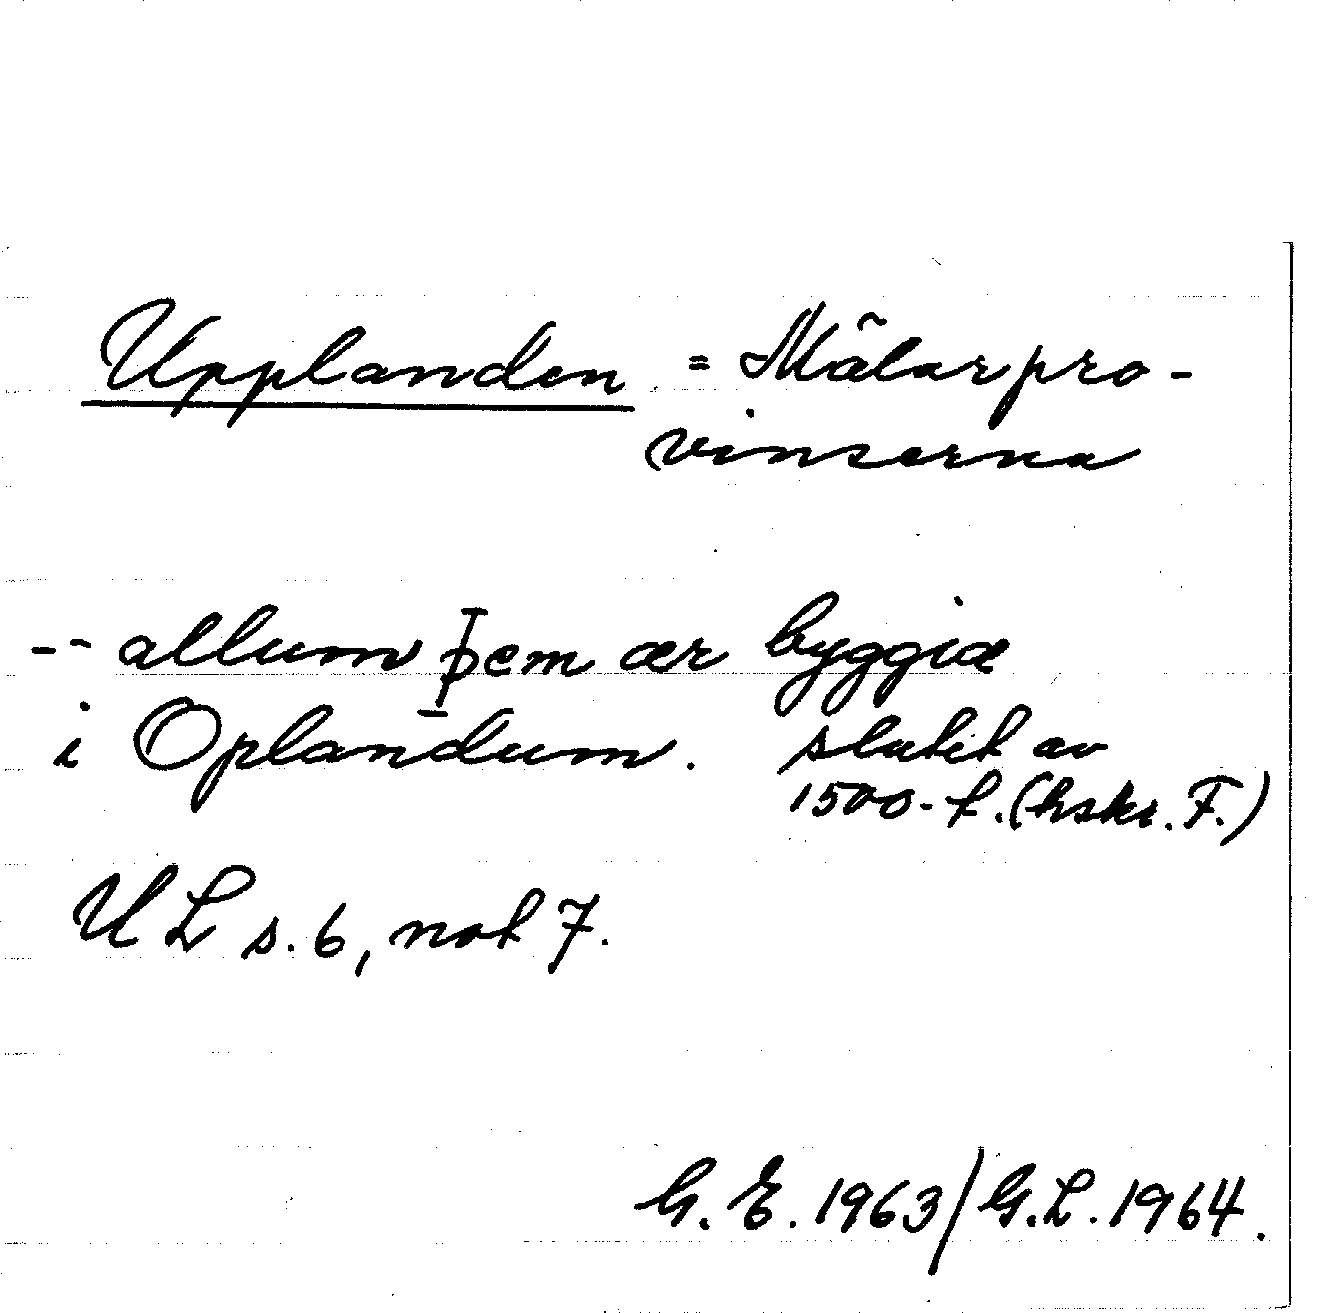 Upplanden = Mälarpro-
vinserna
-- allum þem ær byggiæ
i Oplandum. slutet av
1500-t. (hskr. F.)
UL s. 6, not 7.
G. E. 1963/G.L. 1964.